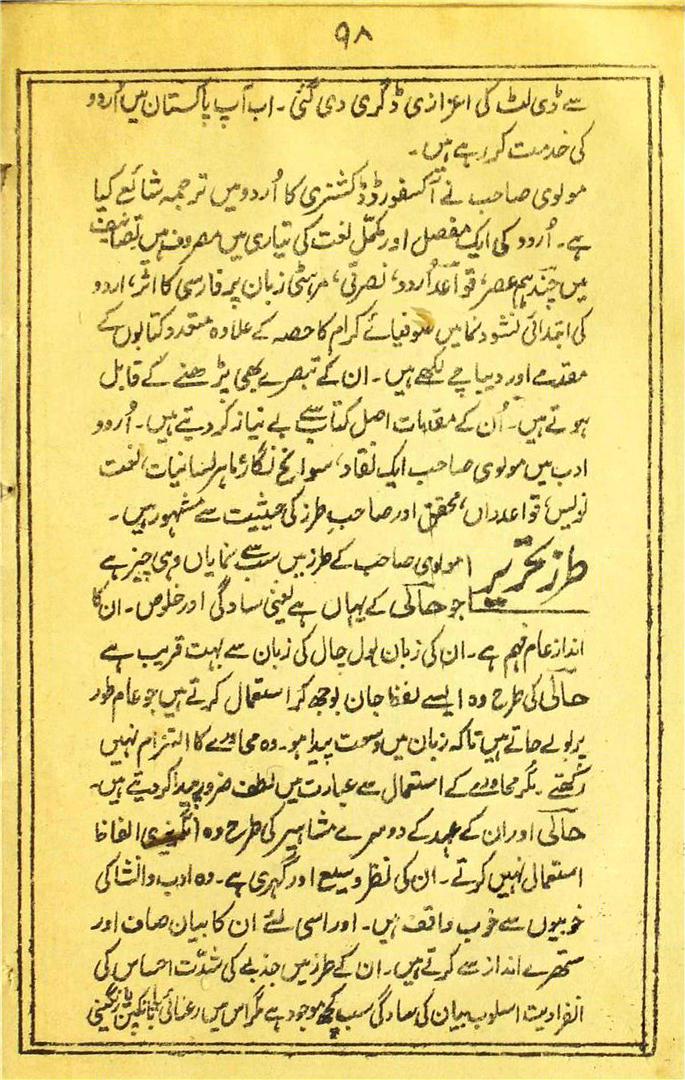 ۹۸
سے ڈی لٹ کی اعزازی ڈگری دی گئی ۔ اب آپ پاکستان میں اُردو
کی خدمت کر رہے ہیں ۔
مولوی صاحب نے آکسفورڈ ڈکشنری کا اُردو میں ترجمہ شائع کیا
ہے ۔ اُردو کی ایک مفصل اور مکمّل لغت کی تیاری میں مصروف ہیں تصانیف
میں چند ہم عصر، قواعد اُردو، نصرتی، مرہٹی زبان پر فارسی کا اثر، اردو
کی ابتدائی نشو و نما میں صوفیائے کرام کا حصہ کے علاوہ متعدد کتابوں کے
مقدمے اور دیباچے لکھے ہیں ۔ ان کے تبصرے بھی پڑھنے کے قابل
ہوتے ہیں ۔ اُن کے مقدمات اصل کتاب سے بے نیاز کر دیتے ہیں ۔ اُردو
ادب میں مولوی صاحب ایک نقاد، سوانح نگار، ماہر لسانیات، لغت
نویس، قواعد داں، محقق اور صاحبِ طرز کی حیثیت سے مشہور ہیں ۔
طرز تحریر مولوی صاحب کے طرز میں سب سے نمایاں وہی چیز ہے
جو حالی کے یہاں ہے یعنی سادگی اور خلوص ۔ ان کا
انداز عام فہم ہے ۔ ان کی زبان بول چال کی زبان سے بہت قریب ہے
حالی کی طرح وہ ایسے لفظ جان بوجھ کر استعمال کرتے ہیں جو عام طور
پر بولے جاتے ہیں تاکہ زبان میں وسعت پیدا ہو ۔ وہ محاورے کا التزام نہیں
رکھتے ۔ مگر محاورے کے استعمال سے عبارت میں لطف ضرور پیدا کر دیتے ہیں ۔
حالی اور ان کے عہد کے دوسرے مشاہیر کی طرح وہ انگریزی الفاظ
استعمال نہیں کرتے ۔ ان کی نظر وسیع اور گہری ہے ۔ وہ ادب و انشا کی
خوبیوں سے خوب واقف ہیں ۔ اور اسی لئے ان کا بیان صاف اور
ستھرے انداز سے کرتے ہیں ۔ ان کے طرز میں جذبے کی شدّت احساس کی
انفرادیت اسلوب بیان کی سادگی سب کچھ موجود ہے مگر اس میں رعنائی بانکپن یا رنگینی